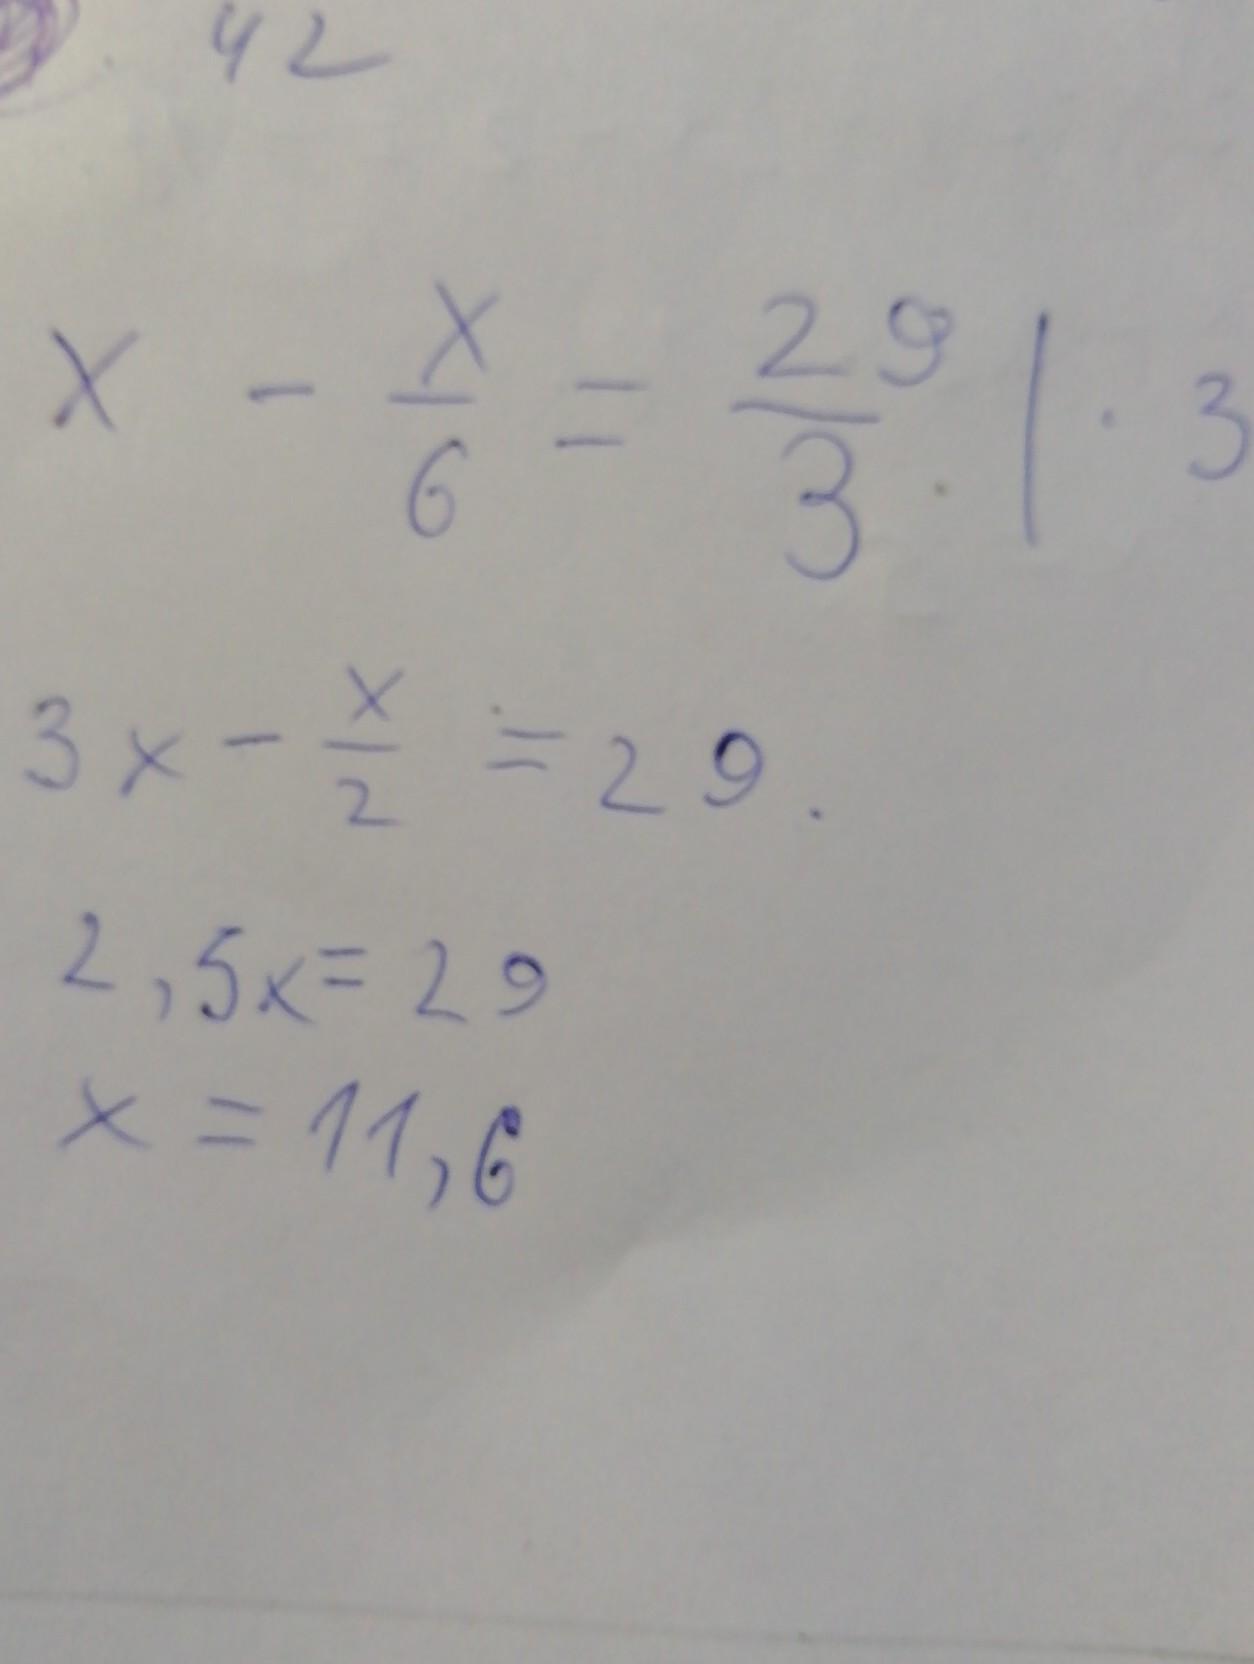 42
x - x/6 = 29/3 | · 3
3x - x/2 = 29.
2,5x = 29
x = 11,6